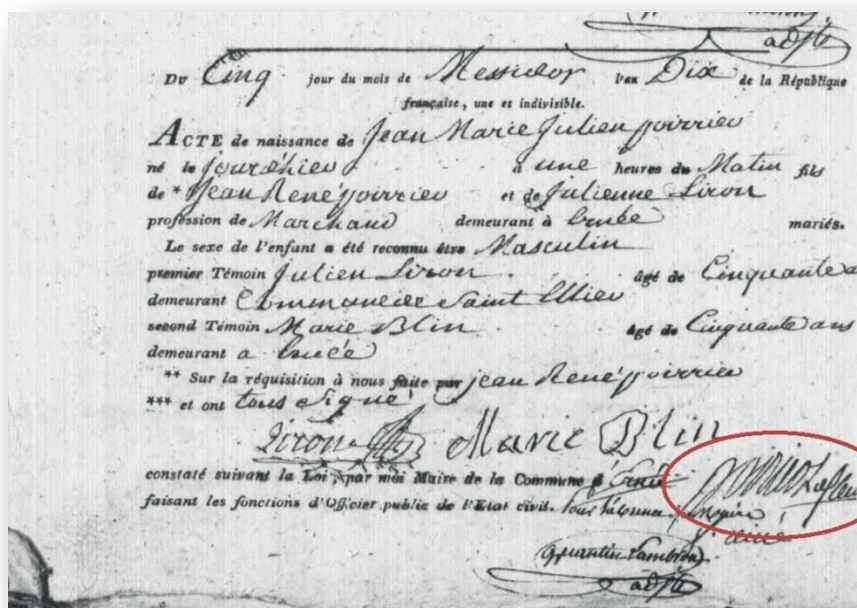 adjt
Du Cinq jour du mois de Messidor l'an Dix de la République
française, une et indivisible.
ACTE de naissance de Jean Marie Julien poirrier
né le jour d'hier à une heures du Matin fils
de * Jean René poirrier et de Julienne Liron
profession de Marchand demeurant à Ernée mariés.
Le sexe de l'enfant a été reconnu être Masculin
premier Témoin Julien Liron âgé de Cinquante a
demeurant Commune de Saint Ellier
second Témoin Marie Blin âgé de Cinquante ans
demeurant a Ernée
** Sur la réquisition à nous faite par jean René poirrier
*** et ont tous Signé
Liron Marie Blin
constaté suivant la Loi, par moi Maire de la Commune d'Ernée
faisant les fonctions d'Officier public de l'Etat civil.
ainé
Quentin Lambron
adjt